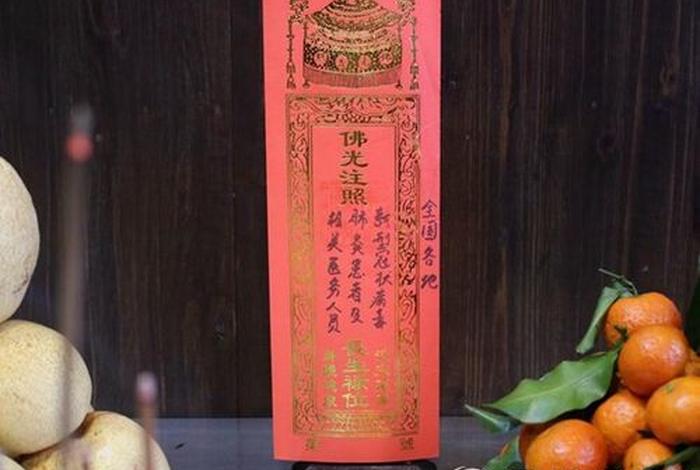 佛光注照
全国各地
新型冠状病毒
肺炎患者及
相关医务人员
長生祿位
第
號